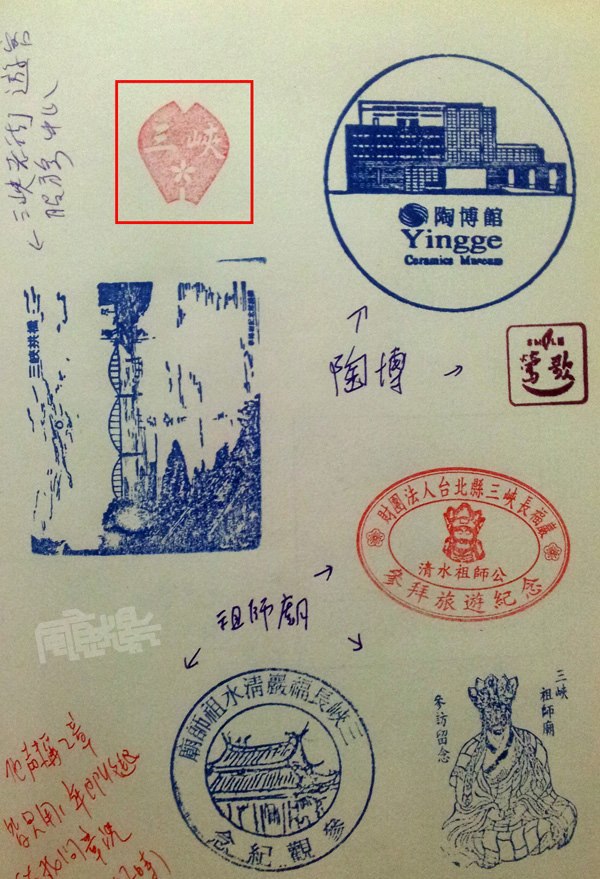 三峽老街 遊客
服務中心
三峽
陶博館
Yingge
Ceramics Museum
三峽拱橋
陶博
SMILE
鶯歌
財團法人台北縣三峽長福巖
清水祖師公
參拜旅遊紀念
祖師廟
三峽長福巖清水祖師廟
參觀紀念
三峽
祖師廟
參訪留念